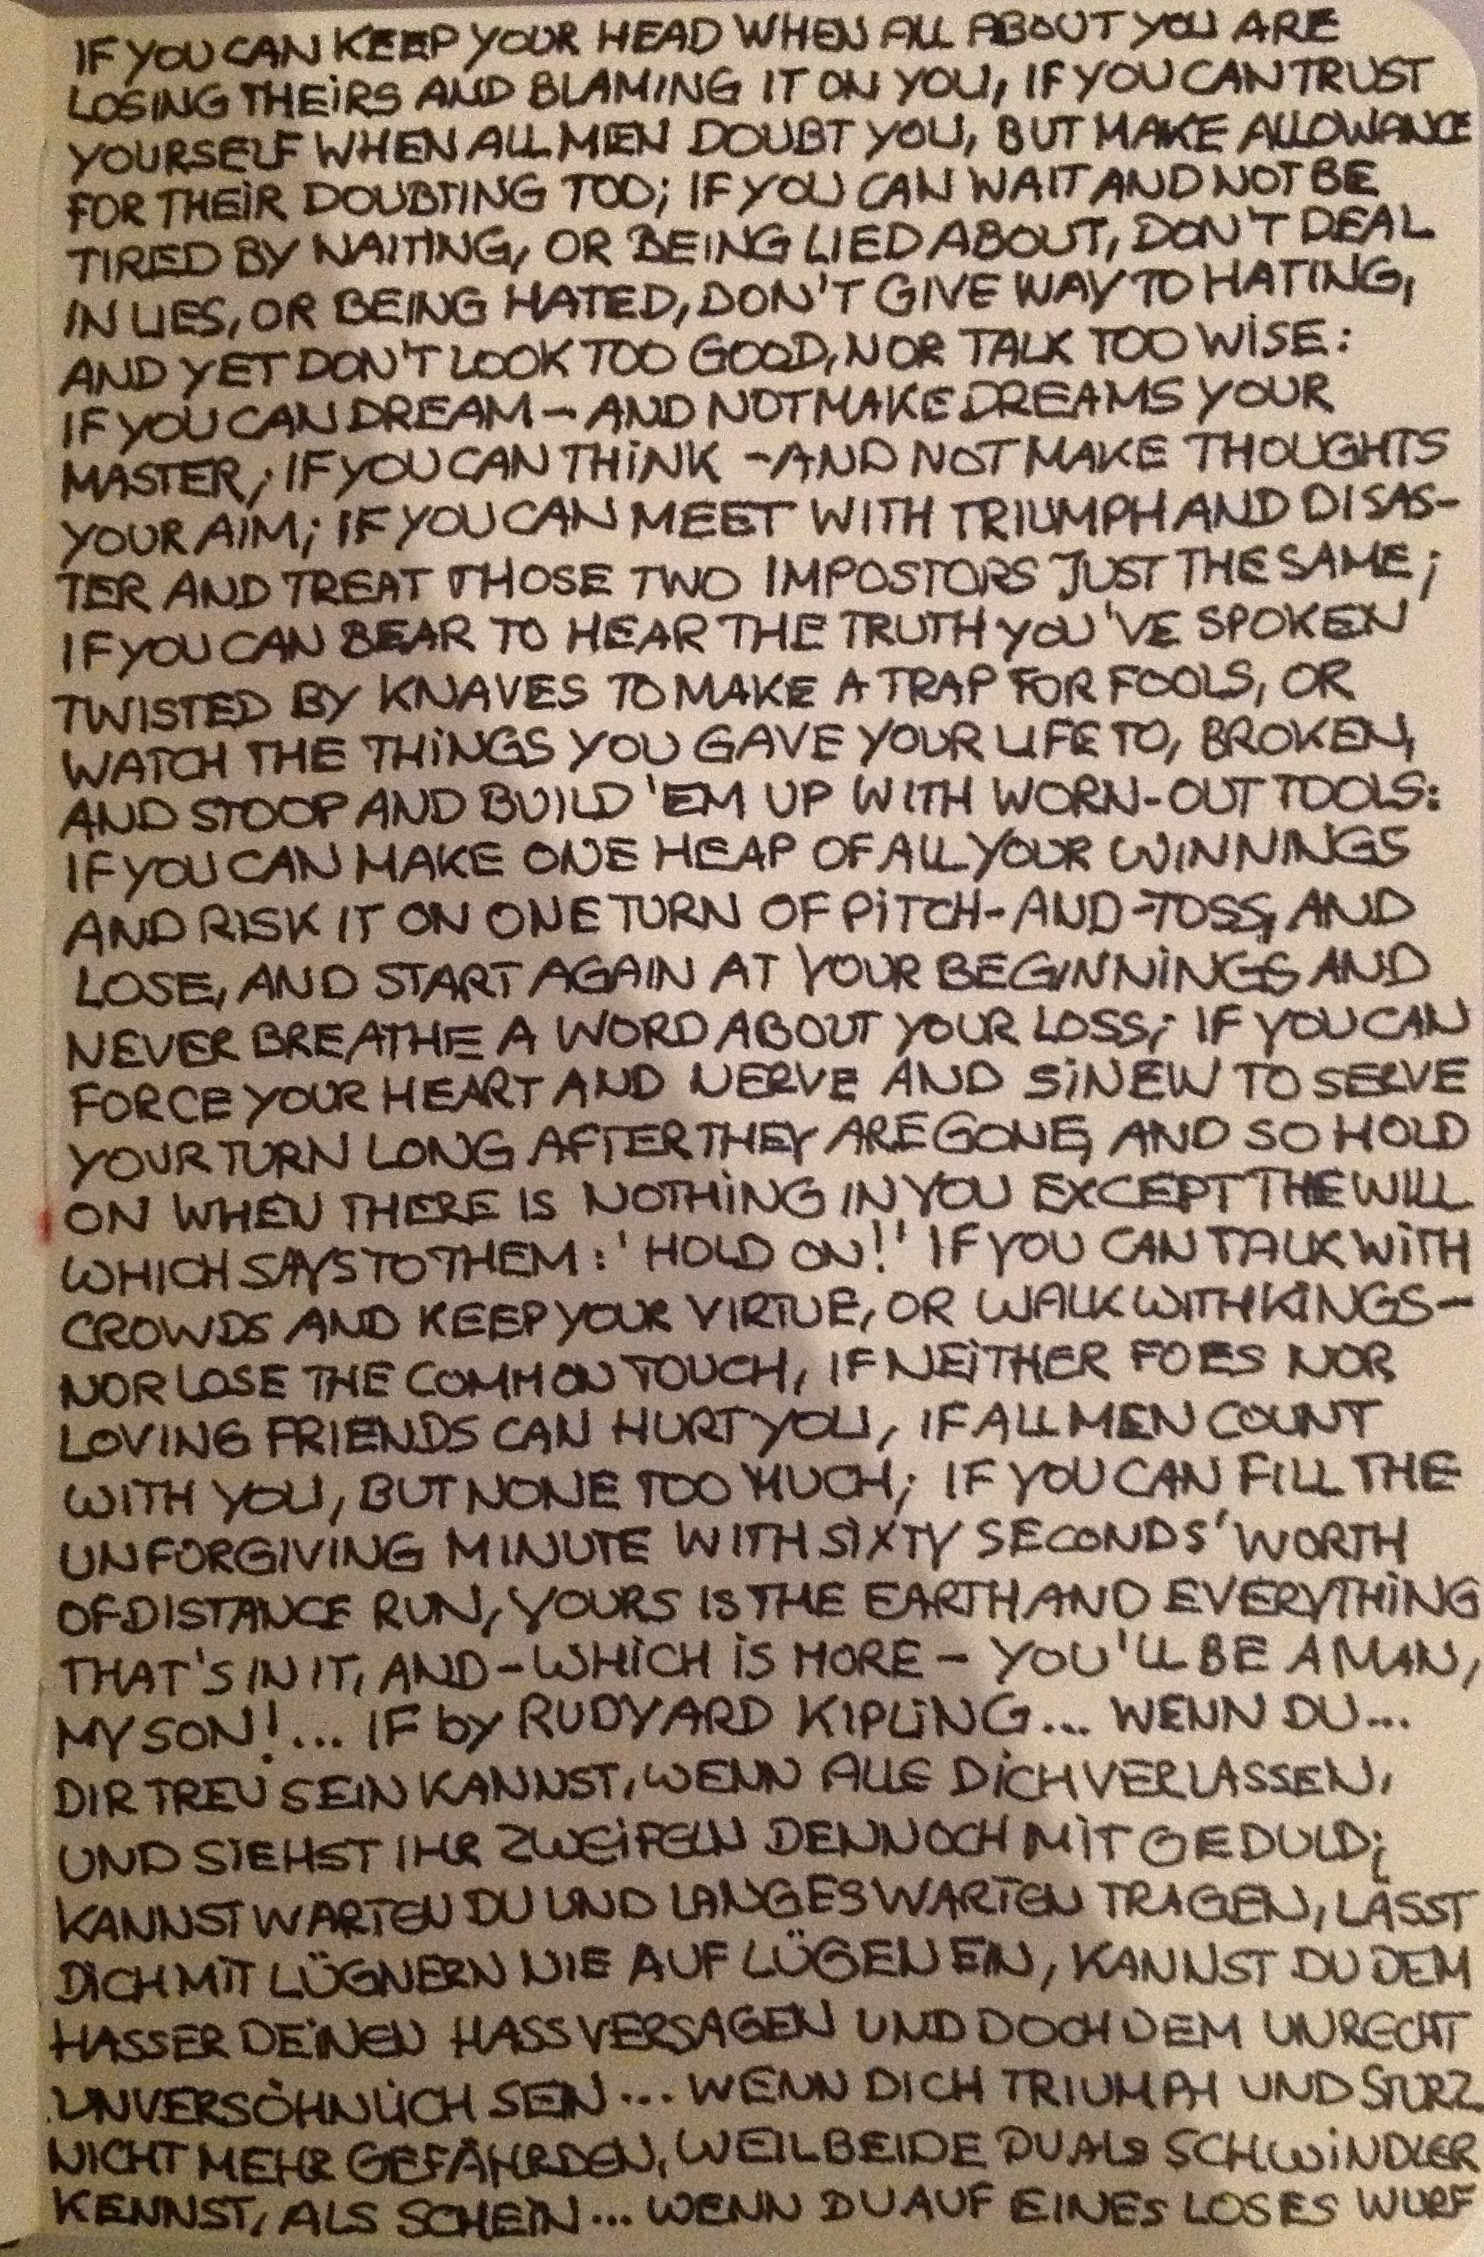 IF YOU CAN KEEP YOUR HEAD WHEN ALL ABOUT YOU ARE
LOSING THEIRS AND BLAMING IT ON YOU, IF YOU CAN TRUST
YOURSELF WHEN ALL MEN DOUBT YOU, BUT MAKE ALLOWANCE
FOR THEIR DOUBTING TOO; IF YOU CAN WAIT AND NOT BE
TIRED BY WAITING, OR BEING LIED ABOUT, DON'T DEAL
IN LIES, OR BEING HATED, DON'T GIVE WAY TO HATING,
AND YET DON'T LOOK TOO GOOD, NOR TALK TOO WISE:
IF YOU CAN DREAM - AND NOT MAKE DREAMS YOUR
MASTER; IF YOU CAN THINK - AND NOT MAKE THOUGHTS
YOUR AIM; IF YOU CAN MEET WITH TRIUMPH AND DISAS-
TER AND TREAT THOSE TWO IMPOSTORS JUST THE SAME;
IF YOU CAN BEAR TO HEAR THE TRUTH YOU'VE SPOKEN
TWISTED BY KNAVES TO MAKE A TRAP FOR FOOLS, OR
WATCH THE THINGS YOU GAVE YOUR LIFE TO, BROKEN,
AND STOOP AND BUILD 'EM UP WITH WORN-OUT TOOLS:
IF YOU CAN MAKE ONE HEAP OF ALL YOUR WINNINGS
AND RISK IT ON ONE TURN OF PITCH-AND-TOSS, AND
LOSE, AND START AGAIN AT YOUR BEGINNINGS AND
NEVER BREATHE A WORD ABOUT YOUR LOSS; IF YOU CAN
FORCE YOUR HEART AND NERVE AND SINEW TO SERVE
YOUR TURN LONG AFTER THEY ARE GONE, AND SO HOLD
ON WHEN THERE IS NOTHING IN YOU EXCEPT THE WILL
WHICH SAYS TO THEM: 'HOLD ON!' IF YOU CAN TALK WITH
CROWDS AND KEEP YOUR VIRTUE, OR WALK WITH KINGS -
NOR LOSE THE COMMON TOUCH, IF NEITHER FOES NOR
LOVING FRIENDS CAN HURT YOU, IF ALL MEN COUNT
WITH YOU, BUT NONE TOO MUCH; IF YOU CAN FILL THE
UNFORGIVING MINUTE WITH SIXTY SECONDS' WORTH
OF DISTANCE RUN, YOURS IS THE EARTH AND EVERYTHING
THAT'S IN IT, AND - WHICH IS MORE - YOU'LL BE A MAN,
MY SON!... IF by RUDYARD KIPLING... WENN DU...
DIR TREU SEIN KANNST, WENN ALLE DICH VERLASSEN,
UND SIEHST IHR ZWEIFELN DENNOCH MIT GEDULD;
KANNST WARTEN DU UND LANGES WARTEN TRAGEN, LÄSST
DICH MIT LÜGNERN NIE AUF LÜGEN EIN, KANNST DU DEM
HASSER DEINEN HASS VERSAGEN UND DOCH DEM UNRECHT
UNVERSÖHNLICH SEIN... WENN DICH TRIUMPH UND STURZ
NICHT MEHR GEFÄHRDEN, WEIL BEIDE DU ALS SCHWINDLER
KENNST, ALS SCHEIN... WENN DU AUF EINES LOSES WURF